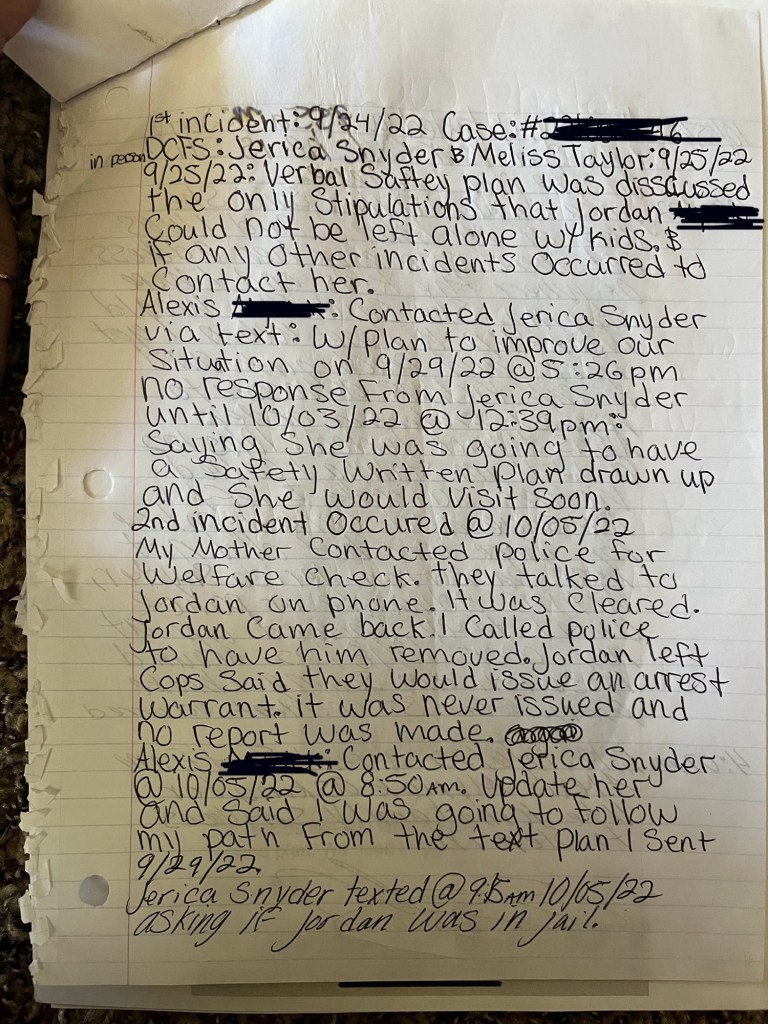 1st incident: 9/24/22 Case:#2 6
in person DCFS: Jerica Snyder & Meliss Taylor: 9/25/22
9/25/22: Verbal Saftey plan was disscussed
the only Stipulations that Jordan
Could not be left alone w/ kids, &
if any other incidents Occurred to
Contact her.
Alexis : Contacted Jerica Snyder
via text: W/Plan to improve our
Situation on 9/29/22 @ 5:26pm
no response From Jerica Snyder
until 10/03/22 @ 12:39pm:
Saying She was going to have
a Safety Written Plan drawn up
and She would Visit Soon.
2nd incident Occured @ 10/05/22
My Mother Contacted police for
Welfare Check. they talked to
Jordan on phone. It was Cleared.
Jordan Came back. I Called police
to have him removed. Jordan left
Cops Said they would issue an arrest
warrant. it was never issued and
no report was made.
Alexis : Contacted Jerica Snyder
@ 10/05/22 @ 8:50AM. Update her
and Said I was going to Follow
my path From the text plan I Sent
9/29/22.
Jerica Snyder texted @ AM 10/05/22
asking if Jordan was in jail.